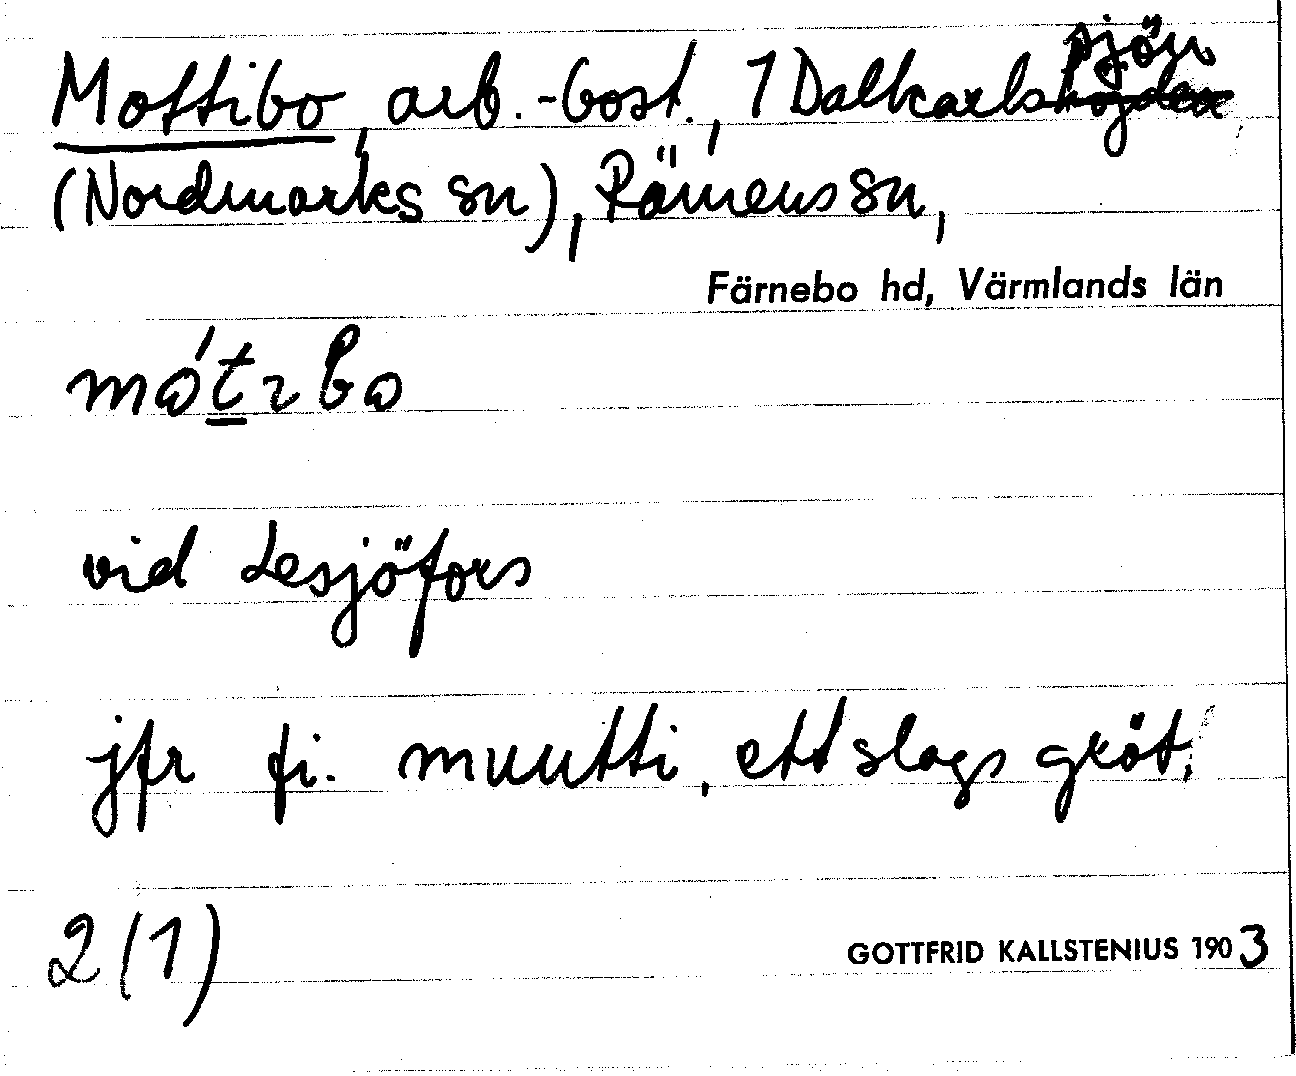 Mottibo, arb.-bost., 1 Dalkarlssjön
(Nordmarks sn), Rämens sn,
Färnebo hd, Värmlands län
vid Lesjöfors
jfr fi. muutti, ett slags gröt.
2(1)
GOTTFRID KALLSTENIUS 1903